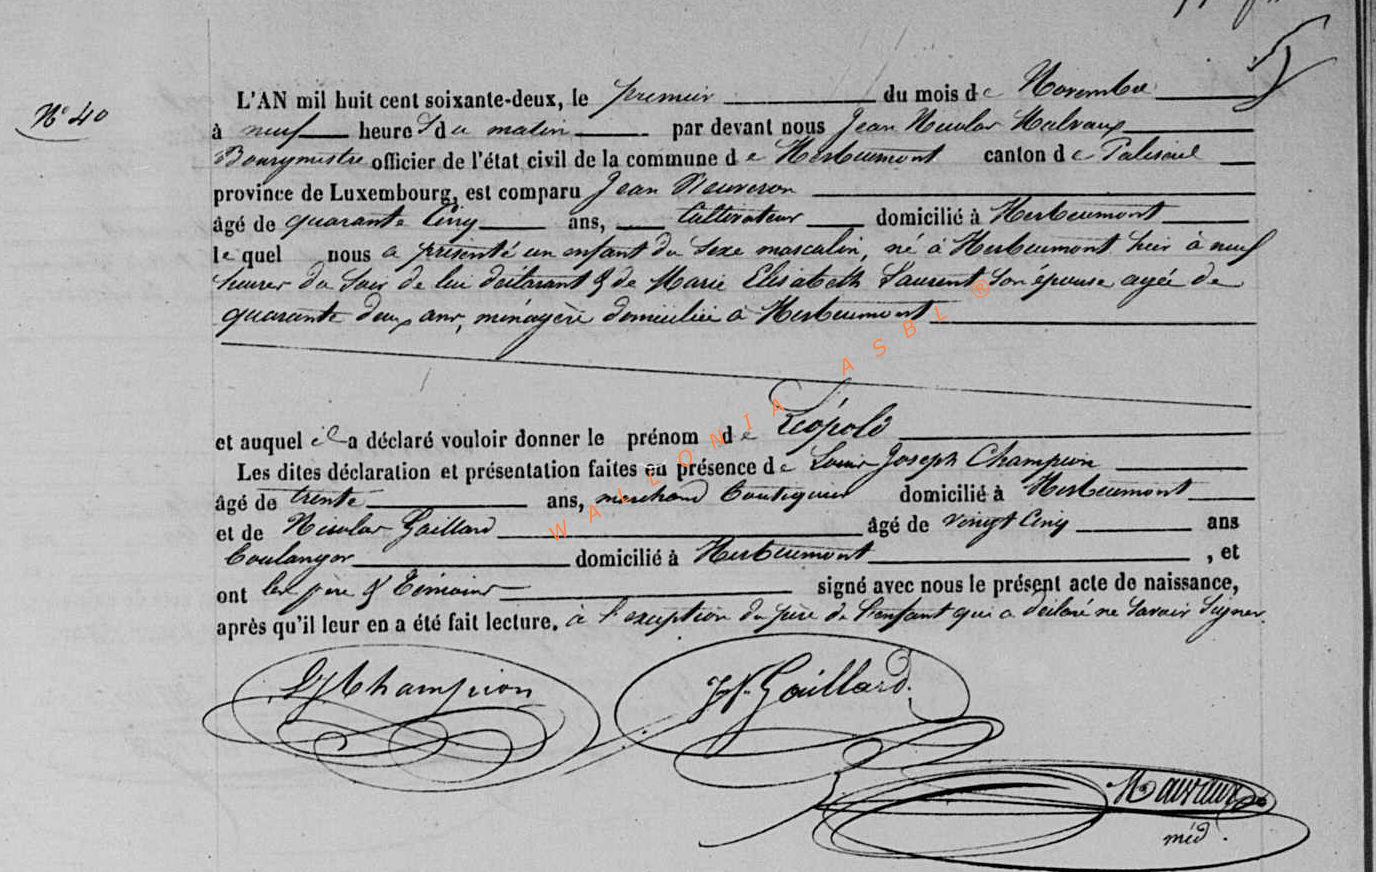 N° 40
L'AN mil huit cent soixante-deux, le premier du mois de Novembre
à neuf heures du matin par devant nous Jean Nicolas Malvaux
Bourgmestre officier de l'état civil de la commune de Herbeumont canton de Paliseul
province de Luxembourg, est comparu Jean
âgé de quarante Cinq ans, Cultivateur domicilié à Herbeumont
lequel nous a présenté un enfant du Sexe masculin, né à Herbeumont hier à neuf
heures du Soir de lui déclarant & de Marie Elisabeth Laurent Son épouse agée de
quarante deux ans, ménagère domiciliée à Herbeumont
et auquel il a déclaré vouloir donner le prénom de Léopold
Les dites déclaration et présentation faites en présence de Louis Joseph Champion
âgé de trente ans, marchand boutiquier domicilié à Herbeumont
et de Nicolas Gaillard âgé de vingt Cinq ans
boulanger domicilié à Herbeumont, et
ont les père & témoins signé avec nous le présent acte de naissance,
après qu'il leur en a été fait lecture. à l'exception du père de l'enfant qui a déclaré ne Savoir Signer.
LJ Champion
N. Gaillard.
méd.
WALLONIA ASBL ®